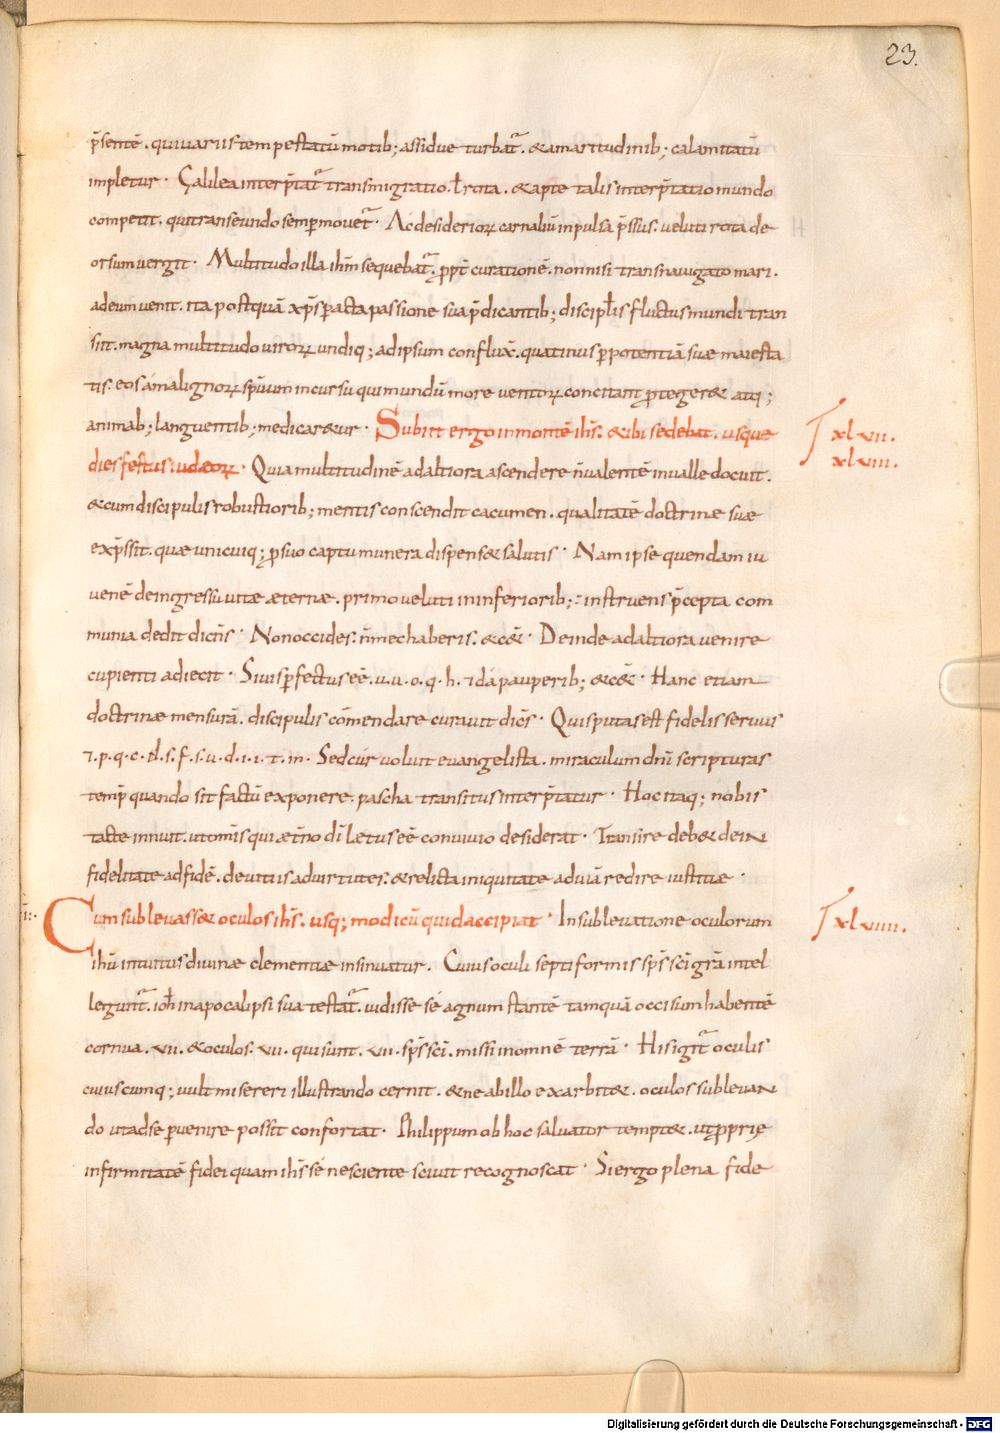 23.
p̄sentē . qui uariis tempestatū motib; assidue turbat᷑ . & amaritudinib; calamitatū
impletur · Galilea interp̄tat᷑ transmigratio . ł rota . & apte talis interp̄tatio mundo
competit . qui transeundo semp mouet᷑ · Ac desiderioꝝ carnaliū inpulsa p̄ssus . ueluti rota de
orsum uergit · Multitudo illa ihm̄ sequebat᷑ . ꝓpt̄ curationē . non nisi transnauigato mari .
ad eum uenit . ita postquā xp̄s ꝑacta passione sua p̄dicantib; disciplis fluctus mundi tran
siit . magna multitudo uiroꝝ undiq; ad ipsum conflux̄ . quatinus ꝑ potentiā suæ maiesta
tis . eos a malignoꝝ spirituum incursu qui mundū more uentoꝝ concitant ꝓteger& atq;
animab; languentib; medicar&ur · Subiit ergo in montē ihs̄ . & ibi sedebat . usque
dies festus iudæoꝝ · Quia multitudinē ad altiora ascendere n̄ ualentē in ualle docuit .
xl vii .
xl viii .
& cum discipulis robustiorib; mentis conscendit cacumen . qualitatē doctrinæ suæ
exp̄ssit . quæ unicuiq; ꝓ suo captu munera dispens& salutis · Nam ipse quendam iu
uenē de ingressu uitæ æternæ . primo ueluti in inferiorib; instruens p̄cepta com
munia dedit dicns̄ · Non occides . n̄ mechaberis . & cet̄ · Deinde ad altiora uenire
cupienti adiecit · Si uis ꝑfectus eē . u . u . o . q . h . ⁊ da pauperib; & cet̄ · Hanc etiam
doctrinæ mensurā . discipulis cōmendare curauit dics̄ · Quis putas est fidelis seruus
⁊ . p . q . c . d . s . f . s . u . d . i . i . t . m · Sed cur uoluit euangelista . miraculum dn̄i scripturas
temp̄ quando sit factū exponere . pascha transitus interp̄tatur · Hoc itaq; nobis
tacte innuit . ut om̄is qui æt̄no di letus eē conuiuio desiderat · Transire deb& de in
fidelitate ad fidē . de uitiis ad uirtutes . & relicta iniquitate ad uiā redire iustitiæ ·
Cum subleuass& oculos ihs̄ . usq; modicū quid accipiat · In subleuatione oculorum
xl viiii .
ihū intuitus diuinæ clementiæ insinuatur . Cuius oculi septiformis sps̄ sci grā intel
legunt᷑ . ioh̄ in apocalipsi sua testat᷑ . uidisse se agnum stantē tamquā occisum habentē
cornua . vii . & oculos . vii . qui sunt . vii . sps̄ sci . missi in omnē terrā · His igit᷑ oculis
cuiuscumq; uult misereri illustrando cernit . & ne ab illo exarbit& . oculos subleuan
do ut ad se ꝑuenire possit confortat · Philippum ob hoc saluator tempt& . ut ꝓprię
infirmitatē fidei quam ihs̄ se nesciente sciuit recognoscat · Si ergo plena fide
Digitalisierung gefördert durch die Deutsche Forschungsgemeinschaft - DFG